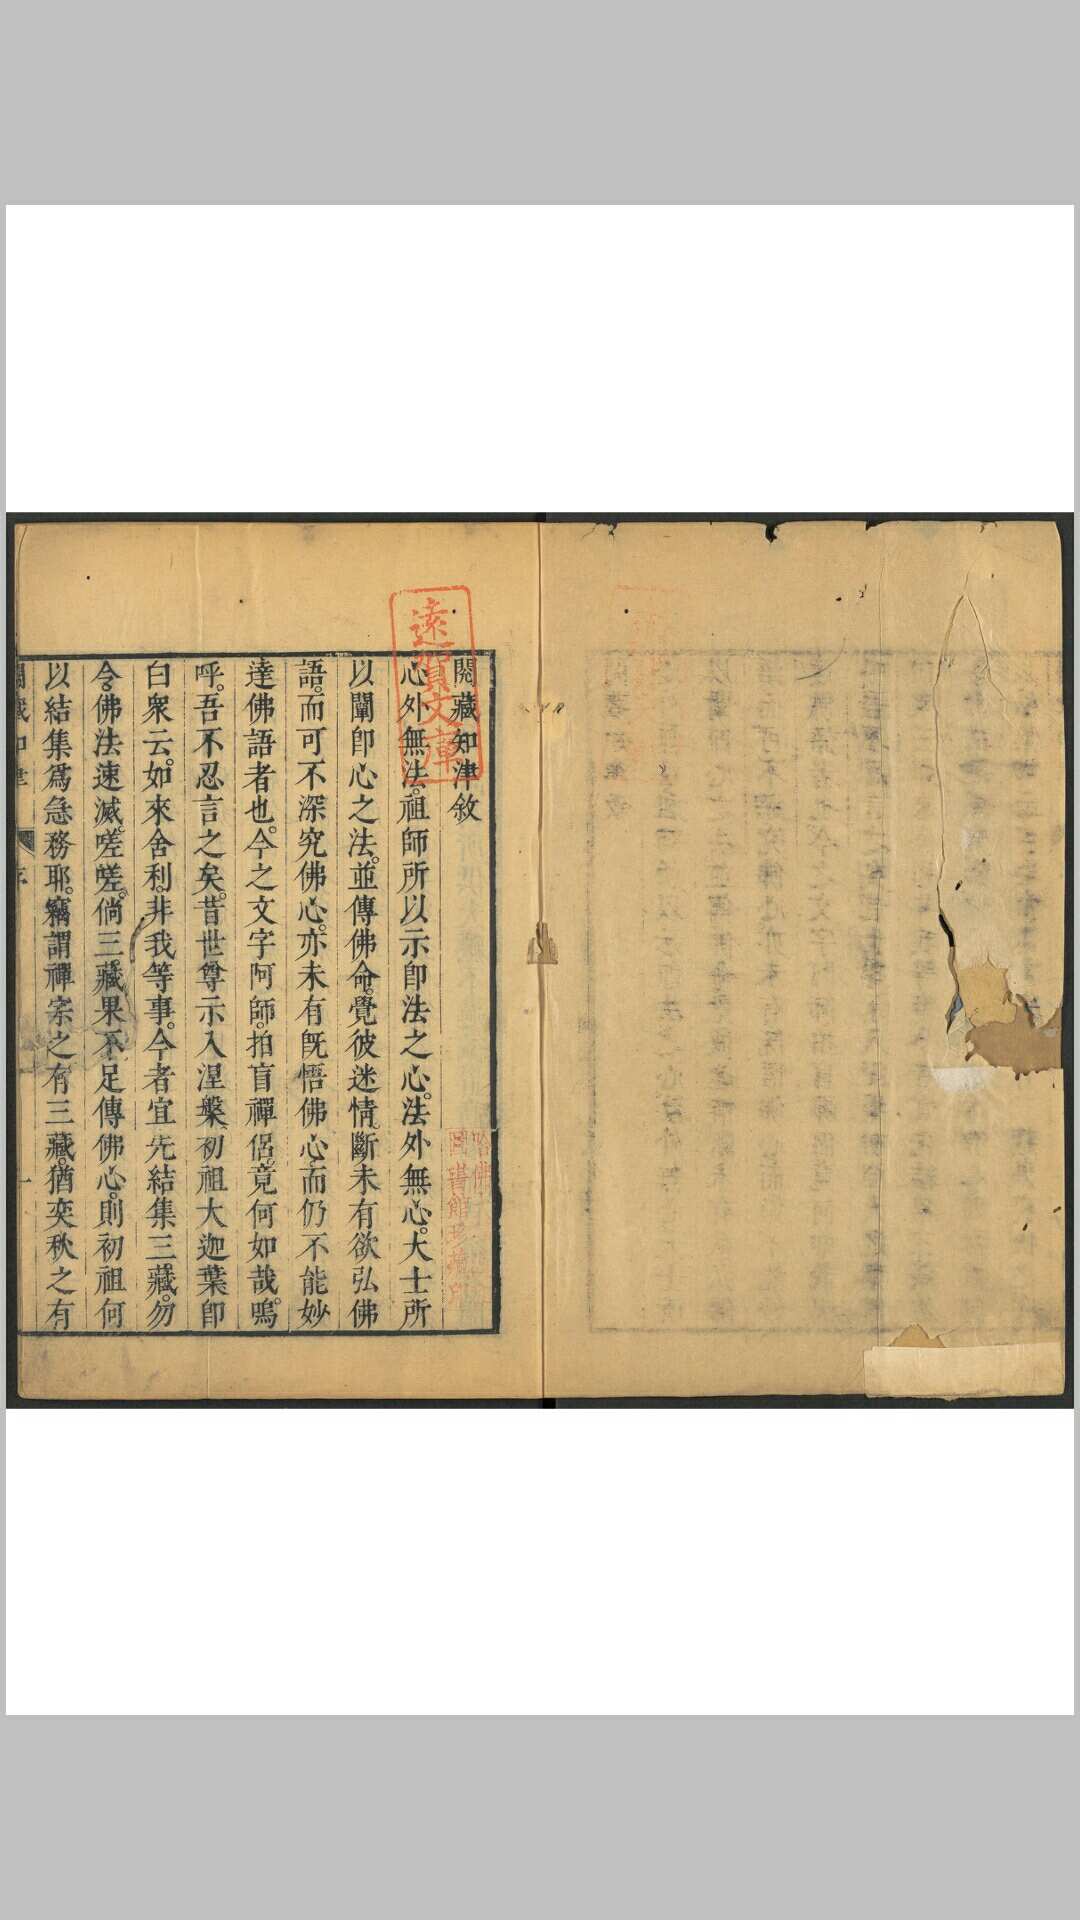 閱藏知津敘
心外無法。祖師所以示卽法之心。法外無心。大士所
以闡卽心之法。並傳佛命。覺彼迷情。斷未有欲弘佛
語。而可不深究佛心。亦未有旣悟佛心。而仍不能妙
達佛語者也。今之文字阿師。拍盲禪侶。竟何如哉。嗚
呼。吾不忍言之矣。昔世尊示入涅槃。初祖大迦葉卽
白衆云。如來舍利。非我等事。今者宜先結集三藏。勿
令佛法速滅。嗟嗟。倘三藏果不足傳佛心。則初祖何
以結集爲急務耶。竊謂禪宗之有三藏。猶奕秋之有
閱藏知津 序 一
文庫
哈佛
圖書館珍藏印